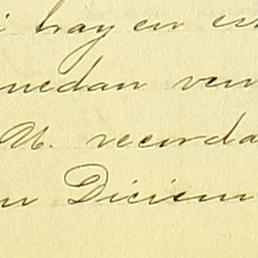 i hay en es
nedan ven
U. recorda
n Diciem